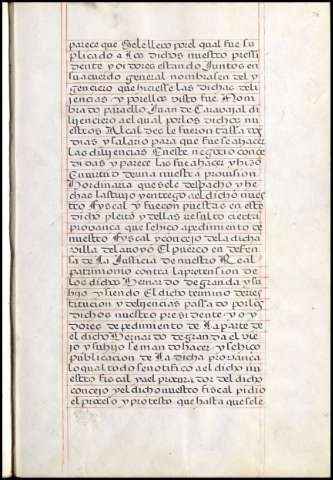 parece que sele lleco por el qual fue su
plicado a los dichos nuestro pressi
dente y oidores estando Juntos en
su acuerdo general nombrasen del y
genciero que hiciesse las dichas dili
jencias y por ellos visto fue nom
brado para ello Juan de Carauajal di
lijenciero a el qual por los dichos nu
estros Alcaldes le fueron tassados
dias y salario para que fuese a hacer
las dilijencias en este negocio conce
didas y parece las fue a hacer y hiço
En virtud de una nuestra prouision
Hordinaria que sele despacho y he
chas las trujo y entrego a el dicho nues
tro fiscal y fueron puestas en este
dicho pleito y dellas resulto cierta
provança que se hiço a pedimento de
nuestro fiscal y concejo de la dicha
villa del arroyo El puerco en defen
sa de La Justicia de nuestro Real
patrimonio contra la pretension de
los dichos Bernardo de granda y su
hijo y siendo El dicho termino de res
titucion y dilijencias passado por los
dichos nuestro presidente y o y
dores de pedimento de La parte de
el dicho Bernardo de granda el vie
jo y su hijo se mando hacer y se hiço
publicacion de La dicha provança
lo qual todo se notifico a el dicho nu
estro fiscal y a el procurador del dicho
concejo y el dicho nuestro fiscal pidio
el proceso y protesto que hasta que sele